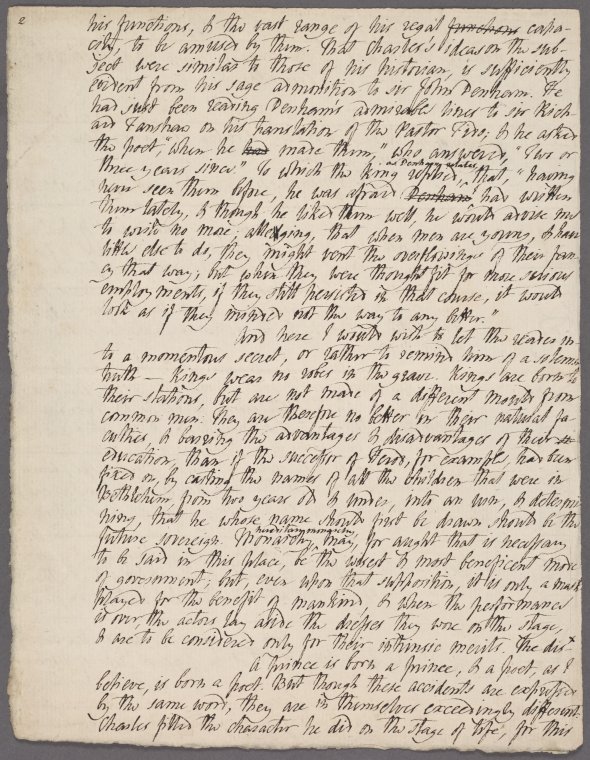 2
his functions, & the vast range of his regal functions capa-
city, to be amused by them. That Charles's ideas on the sub-
ject were similar to those of his historian, is sufficiently
evident from his sage admonition to sir John Denham. He
had just been reading Denham's admirable lines to sir Rich-
ard Fanshaw on his translation of the Pastor Fido; & he asked
the poet, "when he had made them," who answered, "Two or
three years since." To which the king replied, as Denham relates, "that, having
never seen them before, he was afraid Denham had written
them lately, & though he liked them well, he would advise me
to write no more; alleging, that when men are young, & have
little else to do, they might vent the overflowings of their fan-
cy that way; but when they were thought fit for more serious
employments, if they still persisted in that course, it would
look as if they minded not the way to any better."
And here I would wish to let the reader in-
to a momentous secret, or rather to remind him of a solemn
truth — Kings wear no robes in the grave. Kings are born to
their stations, but are not made of a different mould from
common men. They are therefore no better in their natural fa-
culties, & barring the advantages & disadvantages of their
education, than if the successor of Herod, for example, had been
fixed on, by casting the names of all the children that were in
Bethlehem from two years old & under, into an urn, & determi-
ning, that he whose name should first be drawn should be the
future sovereign. Monarchy, hereditary monarchy, may, for aught that is necessary
to be said in this place, be the wisest & most beneficent mode
of government; but, even upon that supposition, it is only a mask
played for the benefit of mankind, & when the performance
is over, the actors lay aside the dresses they wore on the stage,
& are to be considered only for their intrinsic merits. The dis-x
A prince is born a prince, & a poet, as I
believe, is born a poet. But though these accidents are expressed
by the same word, they are in themselves exceedingly different.
Charles filled the character he did on the stage of life, for this